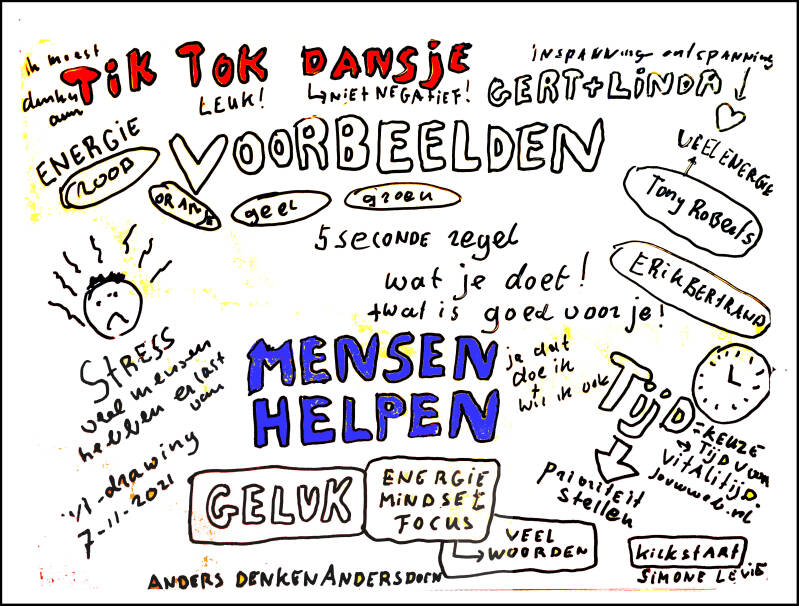 ik moest
denken
aan
TIK TOK DANSJE
LEUK!
NIET NEGATIEF!
INSPANNING ontspanning
GERT+LINDA
VEEL ENERGIE
ENERGIE
VOORBEELDEN
ROOD
ORANJE
geel
groen
Tony Robeals
5 seconde regel
ERIK BERTRAND
wat je doet!
+wat is goed voor je!
STRESS
veel mensen
hebben er last
van
MENSEN
HELPEN
ja dat
doe ik
+
wil ik ook
TijD
=KEUZE
TIJD VOOR
VITALITIJD.
jouwweb.nl
Prioriteit
stellen
'n-drawing
7-11-2021
GELUK
ENERGIE
MINDSET
FOCUS
VEEL
WOORDEN
kickstart
SIMONE LEVIE
ANDERS DENKEN ANDERS DOEN